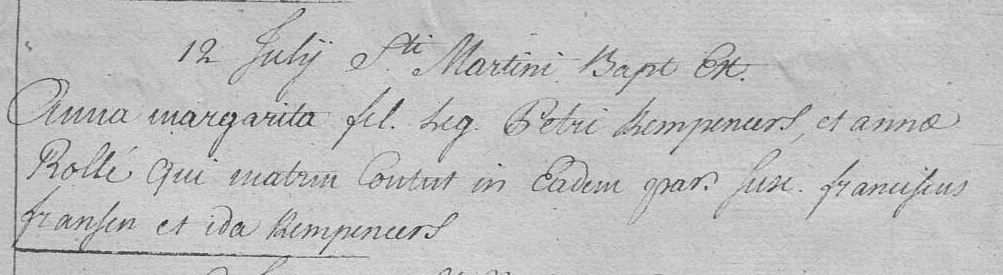 12 Julij Sti Martini Bapt Est.
Anna margarita fil. Leg. Petri Kempeneers, et annæ
Rollé Qui matrim Contxt in Eadem par. Susc. franciscus
fransen et ida Kempeneers